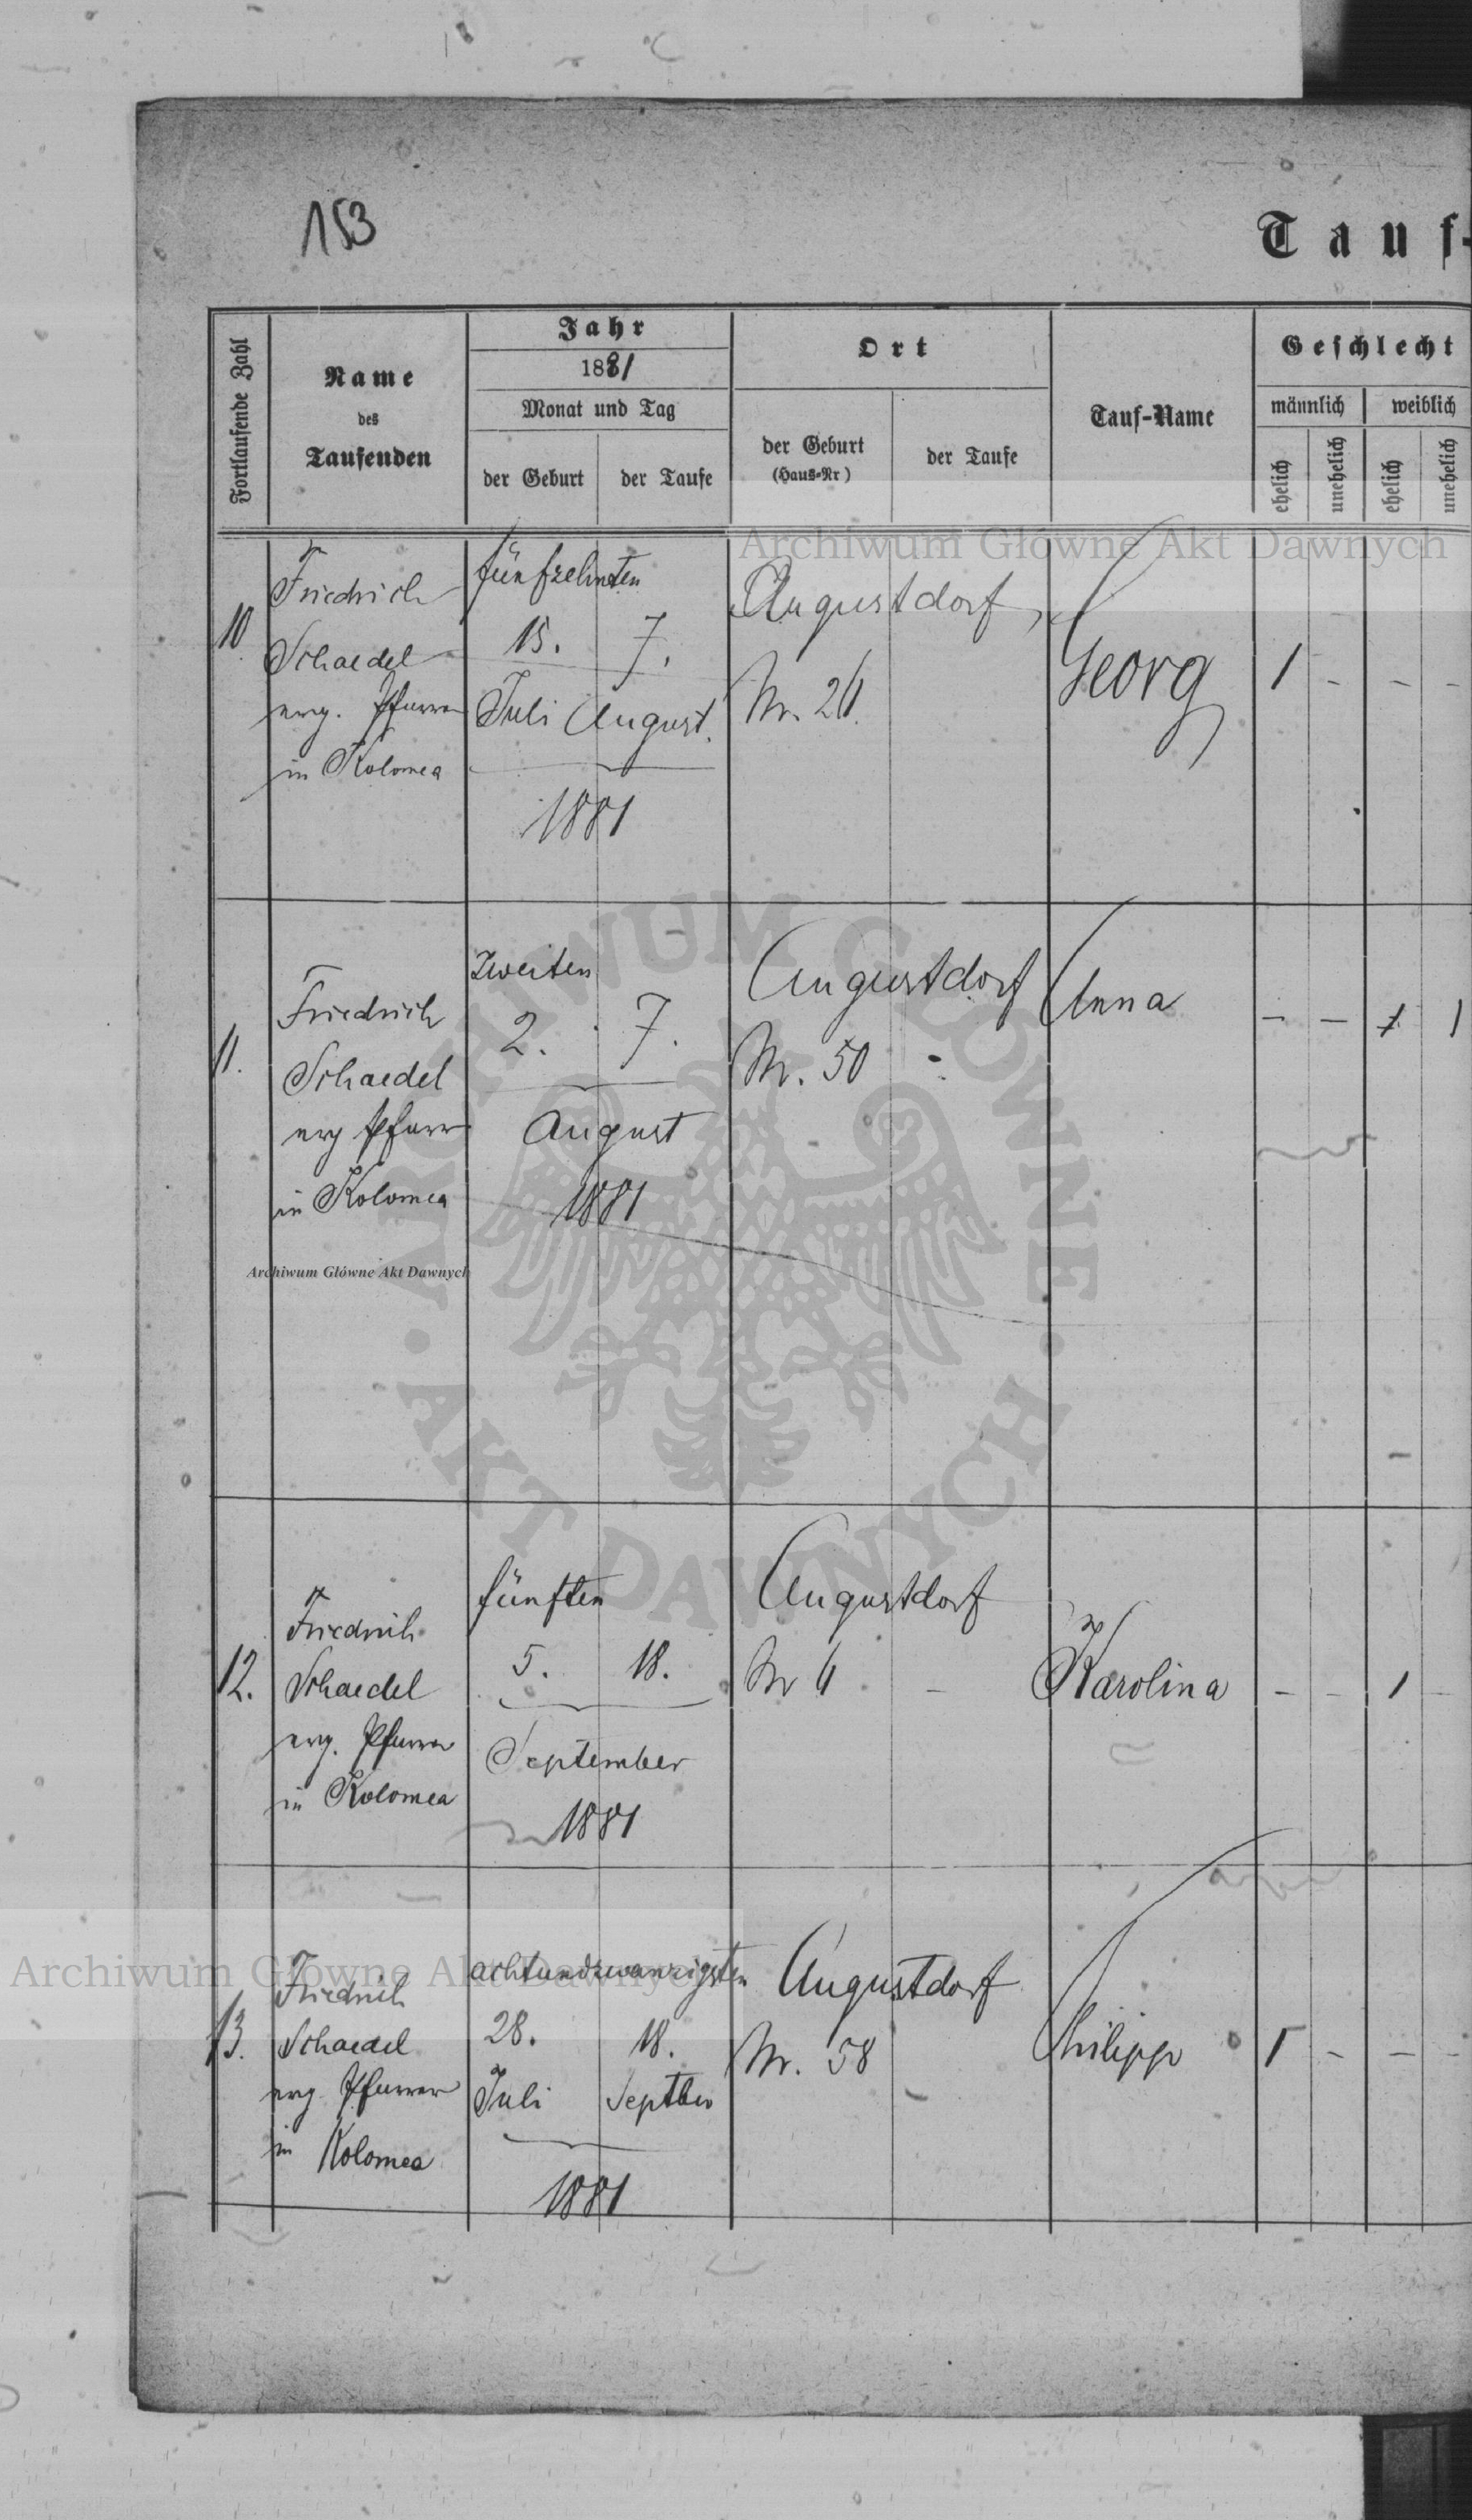 153
Tauf-
Fortlaufende Zahl
Name
des
Taufenden
Jahr
1881
Monat und Tag
der Geburt
der Taufe
Ort
der Geburt
(Haus-Nr)
der Taufe
Tauf-Name
Geschlecht
männlich
weiblich
ehelich
unehelich
ehelich
unehelich
Archiwum Główne Akt Dawnych
10
Friedrich
Schaedel
evg. Pfarrer
in Kolomea
fünfzehnten
15. 7.
Juli August.
1881
Augustdorf,
Nr.
Georg
1 - - -
11.
Friedrich
Schaedel
evg Pfarr
in Kolomea
zweiten
2. 7.
August
1881
Augustdorf
Nr. 50
Anna
- - 1 1
Archiwum Główne Akt Dawnych
ARCHIWUM GŁÓWNE · AKT DAWNYCH ·
12.
Friedrich
Schaedel
evg. Pfarrer
in Kolomea
fünften
5. 18.
September
1881
Augustdorf
Nr -
Karolina
- - 1 -
Archiwum Główne Akt Dawnych
13.
Friedrich
Schaedel
evg. Pfarrer
in Kolomea
achtundzwanzigsten
28. 18.
Juli Septber
1881
Augustdorf
Nr. 58
Philipp
1 - - -